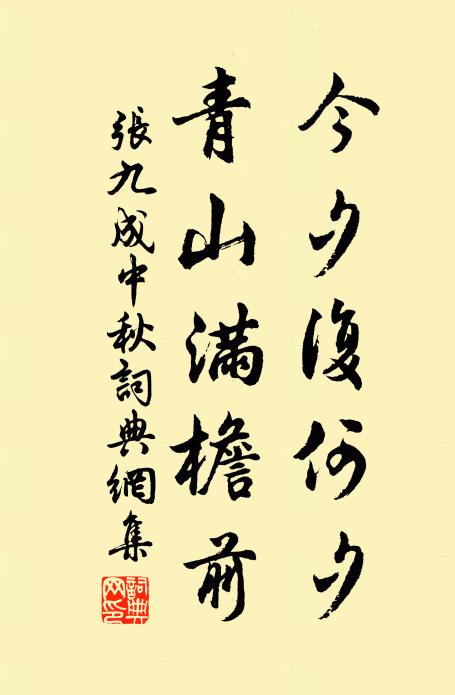 今夕復何夕
青山滿檐前
張九成中秋詞典網集
詞典
网印